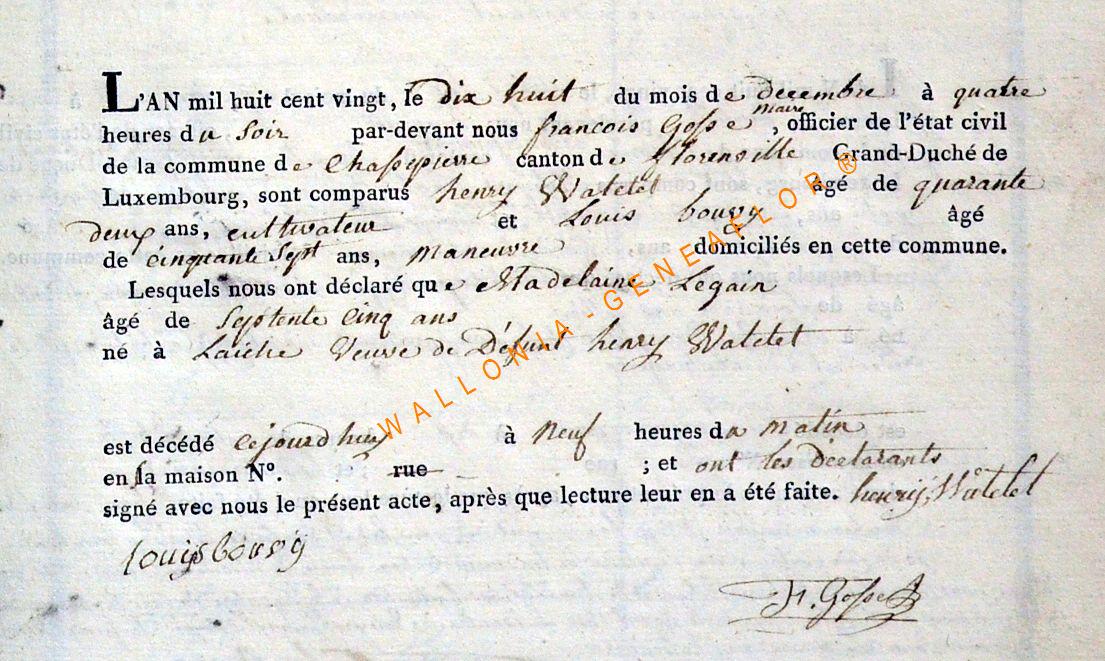 L'AN mil huit cent vingt, le dix huit du mois de decembre à quatre
heures du soir par-devant nous francois Gosse maire, officier de l'état civil
de la commune de Chassepierre canton de florenville Grand-Duché de
Luxembourg, sont comparus henry Watelet âgé de quarante
deux ans, cultivateur et Louis bourg âgé
de cinquante Sept ans, maneuvre domiciliés en cette commune.
Lesquels nous ont déclaré que Madelaine Legain
âgé de Septente Cinq ans
né à Laiche Veuve de Défunt henry Watelet
est décédé cejourdhuy à Neuf heures du matin
en la maison Nº. rue ; et ont les déclarants
signé avec nous le présent acte, après que lecture leur en a été faite. henry Watelet
louis bourg
H. Gosse
WALLONIA-GENEAFLOR®